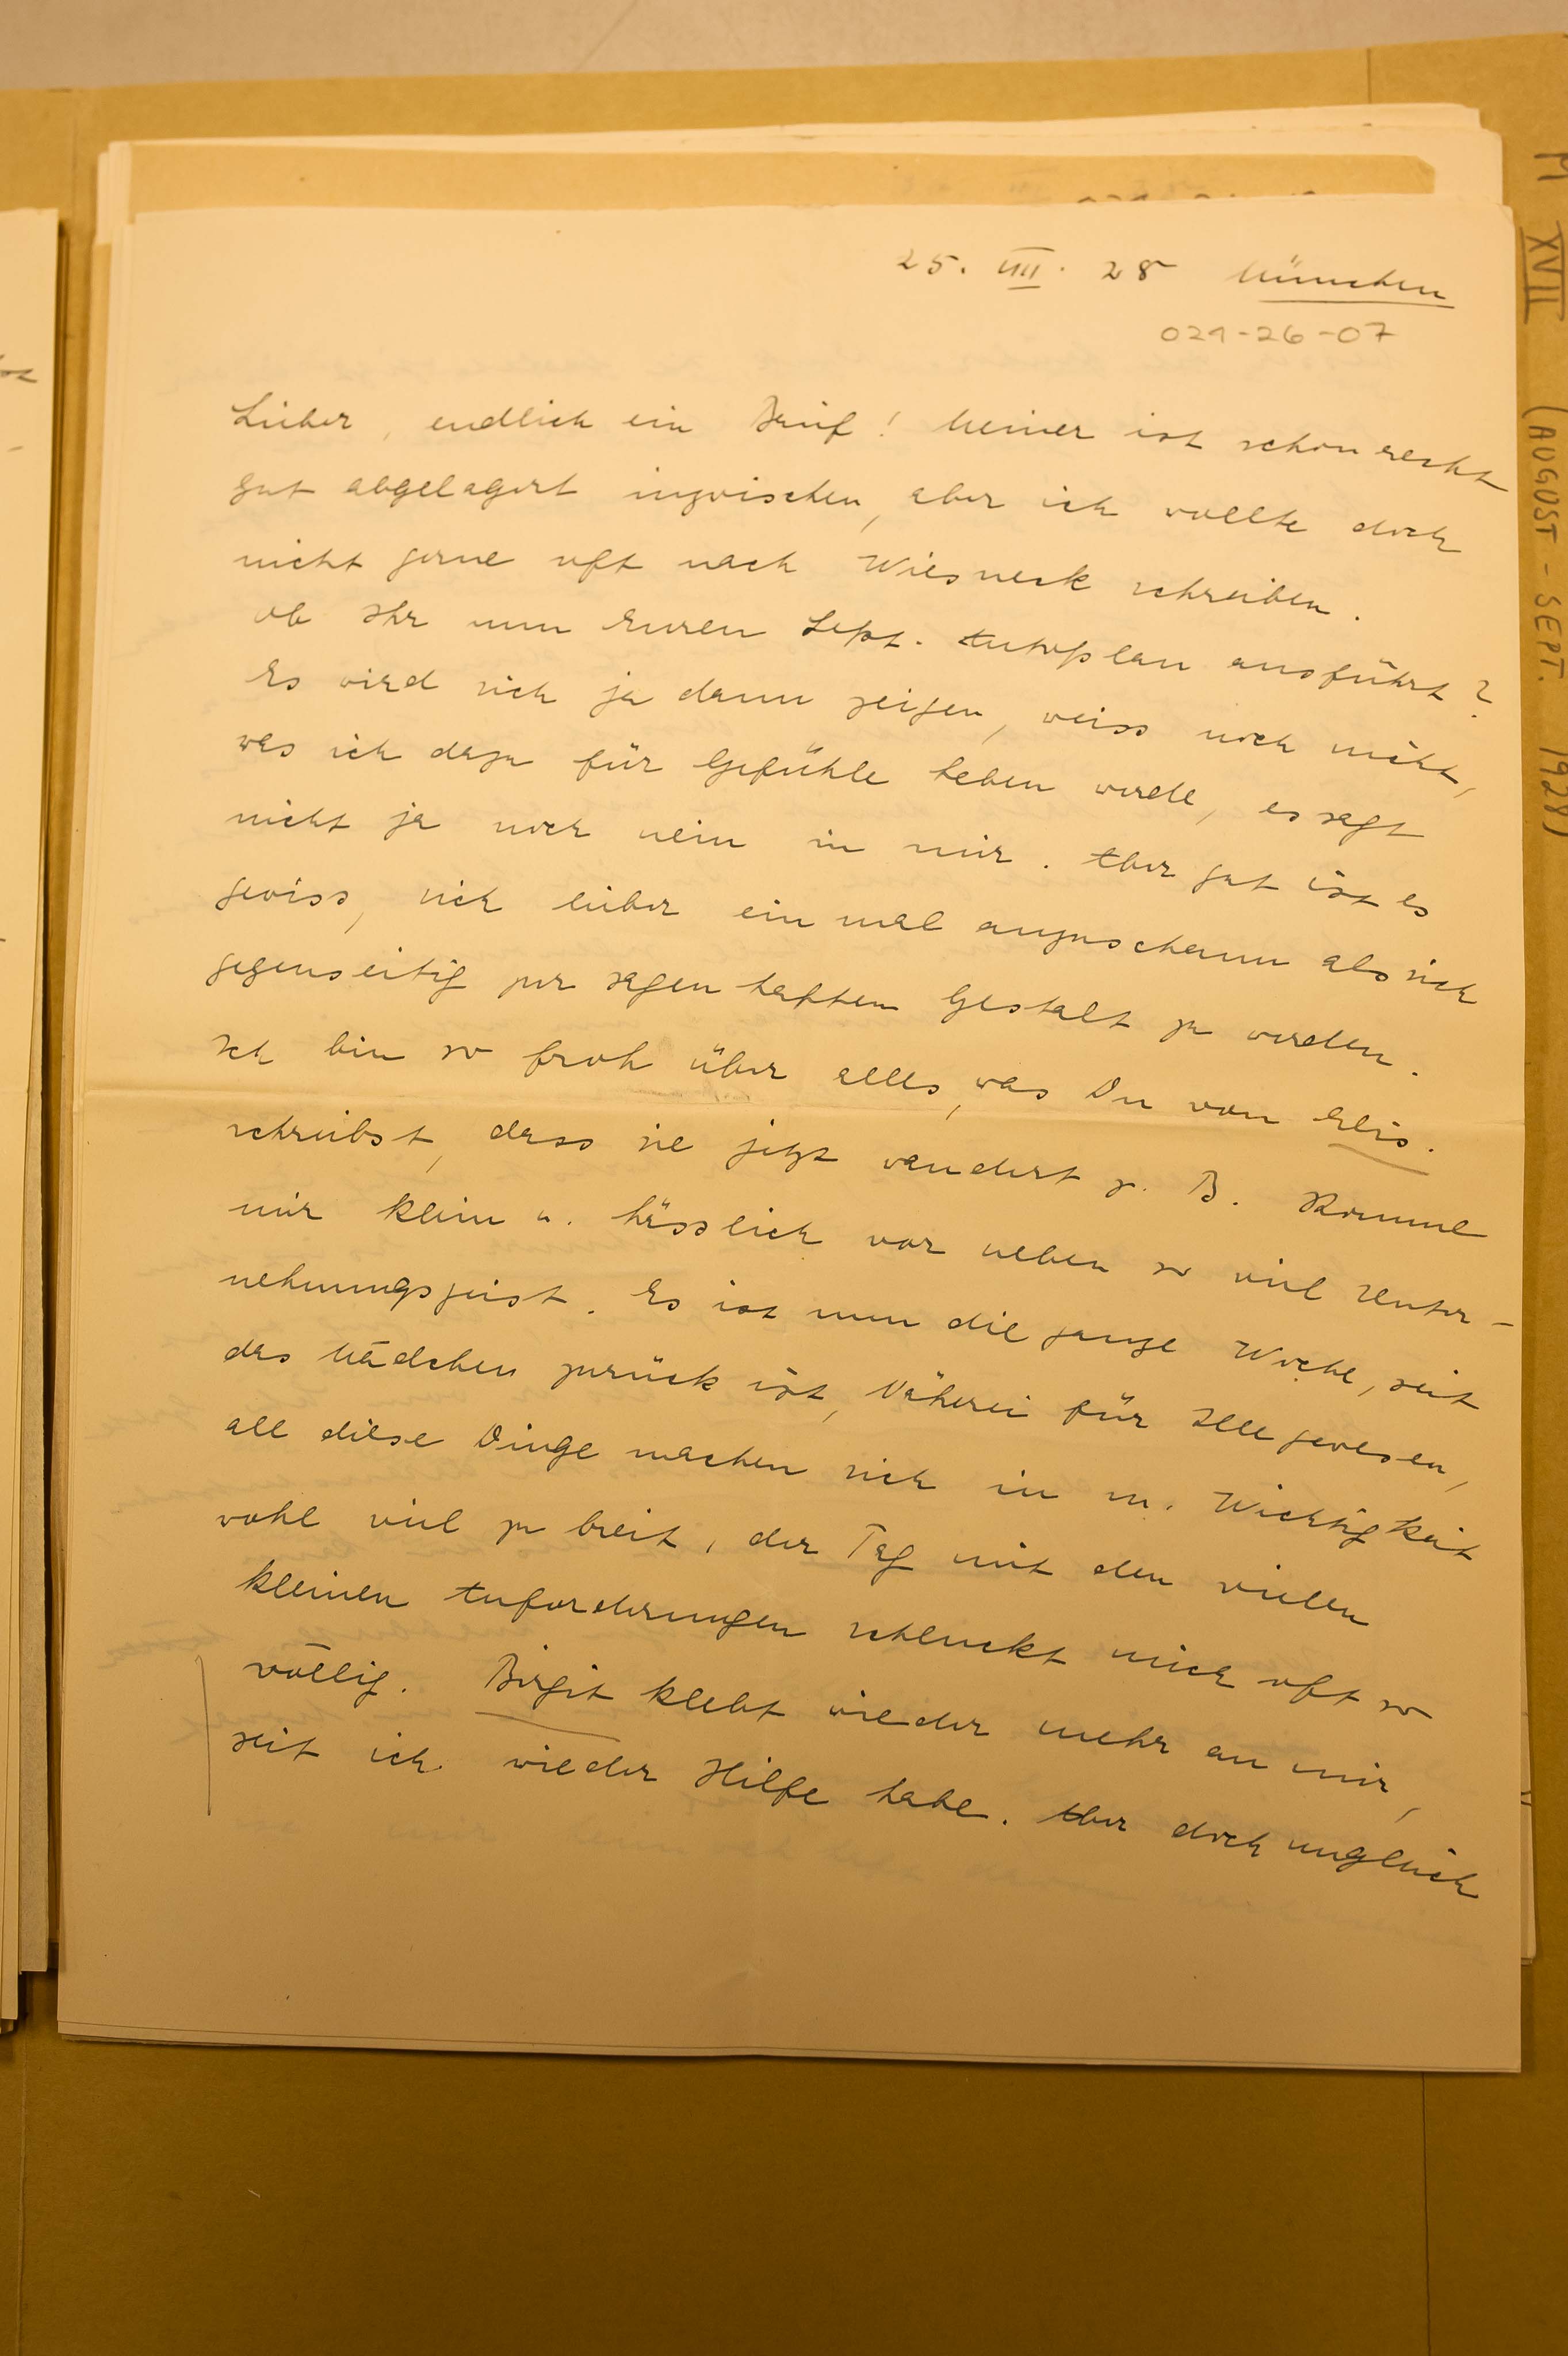 25. VIII. 28 München
021-26-07
Lieber, endlich ein Brief! Meiner ist schon recht
gut abgelagert inzwischen, aber ich wollte doch
nicht gerne oft nach Wiesneck schreiben.
Ob Ihr nun Euren Sept. Autoplan ausführt?
Es wird sich ja dann zeigen, weiss noch nicht,
was ich dazu für Gefühle haben werde, es sagt
nicht ja noch nein in mir. Aber gut ist es
gewiss, sich lieber ein mal anzuschauen als sich
gegenseitig zur sagenhaften Gestalt zu werden.
Ich bin so froh über alles, was Du von Elis.
schreibst, dass sie jetzt wandert z. B. Komme
mir klein u. hässlich vor neben so viel Unter-
nehmungsgeist. Es ist nun die ganze Woche, seit
das Mädchen zurück ist, Näherei für Ille gewesen,
all diese Dinge machen sich in m. Wichtigkeit
wohl viel zu breit, der Tag mit den vielen
kleinen Anforderungen schluckt mich oft so
völlig. Birgit klebt wieder mehr an mir,
seit ich wieder Hilfe habe. Aber doch ungleich
M XVII (AUGUST - SEPT. 1928)